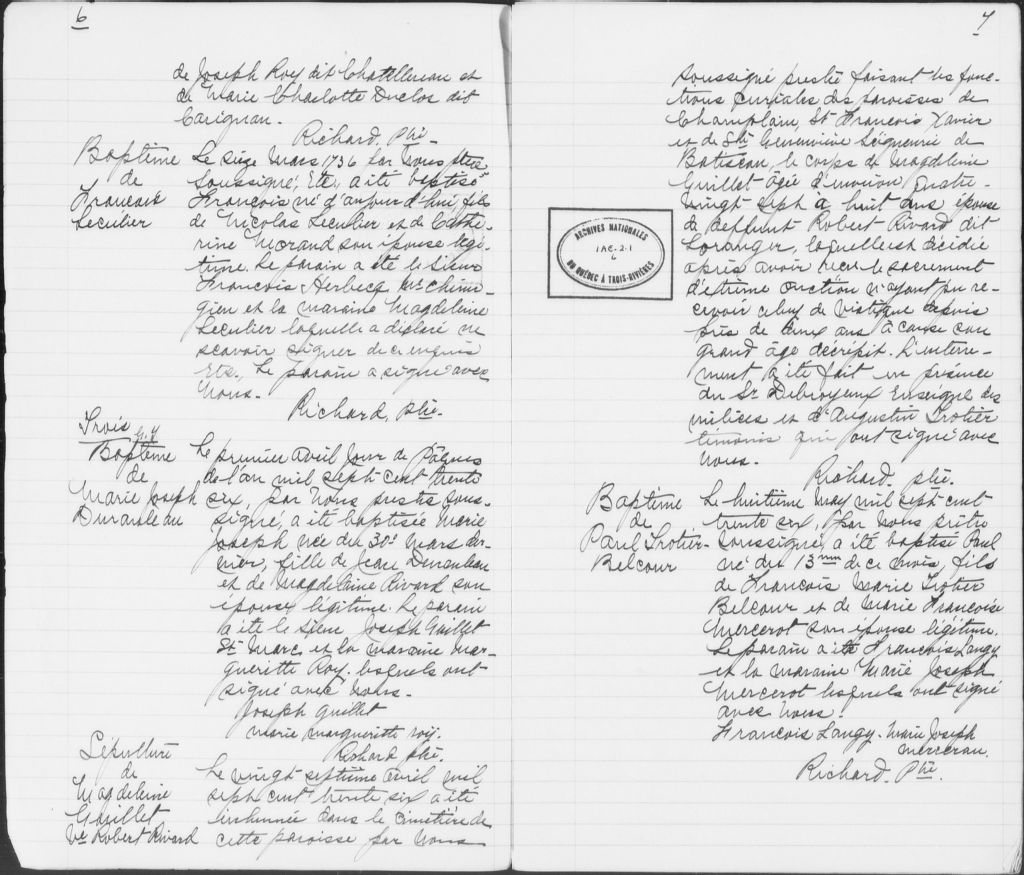 6
de Joseph Roy dit Chatellereau et
de Marie Charlotte Duclos dit
Carignan.
Richard, ptre.
Baptême
de
Francois
Leculier
Le seize Mars 1736 par Nous ptre
soussigné, Etc, a été baptisé
François né d'aujourd'hui, fils
de Nicolas Leculier et de Cathe-
rine Morand son épouse légi-
time. Le parain a été le sieur
François Herbecq Me chirur-
gien et la maraine Magdeleine
Leculier laquelle a déclaré ne
scavoir signer de ce enquis
Etc., Le parain a signé avec
Nous.
Richard, ptre.
Trois
Baptême
de
Marie Joseph
Duranleau
Le premier avril Jour de Pâques
de l'an mil sept cent trente
six, par Nous prestre sous-
signé, a été baptisée Marie
Joseph née du 30e Mars der-
nier, fille de Jean Duranleau
et de Magdelaine Rivard son
épouse légitime. Le parain
a été le Sieur Joseph Guillet
St Marc, et la maraine Mar-
gueritte Roy. lesquels ont
signé avec Nous.
Joseph Guillet
Marie Marguerite roy.
Richard ptre.
Sépulture
de
Magdeleine
Guillet
Ve Robert Rivard
Le vingt septième avril mil
sept cent trente six a été
inhumée dans le cimetière de
cette paroisse par Nous
7
soussigné prestre faisant les fonc-
tions curiales des paroisses de
Champlain, St François Xavier
et de Ste Geneviève Seigneurie de
Batiscan, le corps de Magdeleine
Guillet âgée d'environ quatre-
vingt sept à huit ans épouse
de deffunt Robert Rivard dit
Loranger, laquelle est décédée
après avoir reçu le sacrement
d'extrême onction n'ayant pu re-
cevoir celuy de Viatique depuis
près de deux ans à cause son
grand âge décrépit. L'enterre-
ment a été fait en présence
du Sr Debroyeux Enseigne des
milices et d'Augustin Trotier
témoins qui ont signé avec
Nous.
Richard, ptre.
Baptême
de
Paul Trotier-
Belcour
Le huitième may mil sept cent
trente six, par Nous prêtre
soussigné, a été baptisé Paul
né du 13me de ce mois, fils
de François Marie Trotier
Belcour et de Marie Françoise
Mercerot son épouse légitime.
Le parain a été François Langy
et la maraine Marie Joseph
Mercerot lesquels ont signé
avec Nous.
Francois Langy. Marie Joseph
Mercerau.
Richard, Ptre.
ARCHIVES NATIONALES
1AC-2-1
6
DU QUÉBEC À TROIS-RIVIÈRES